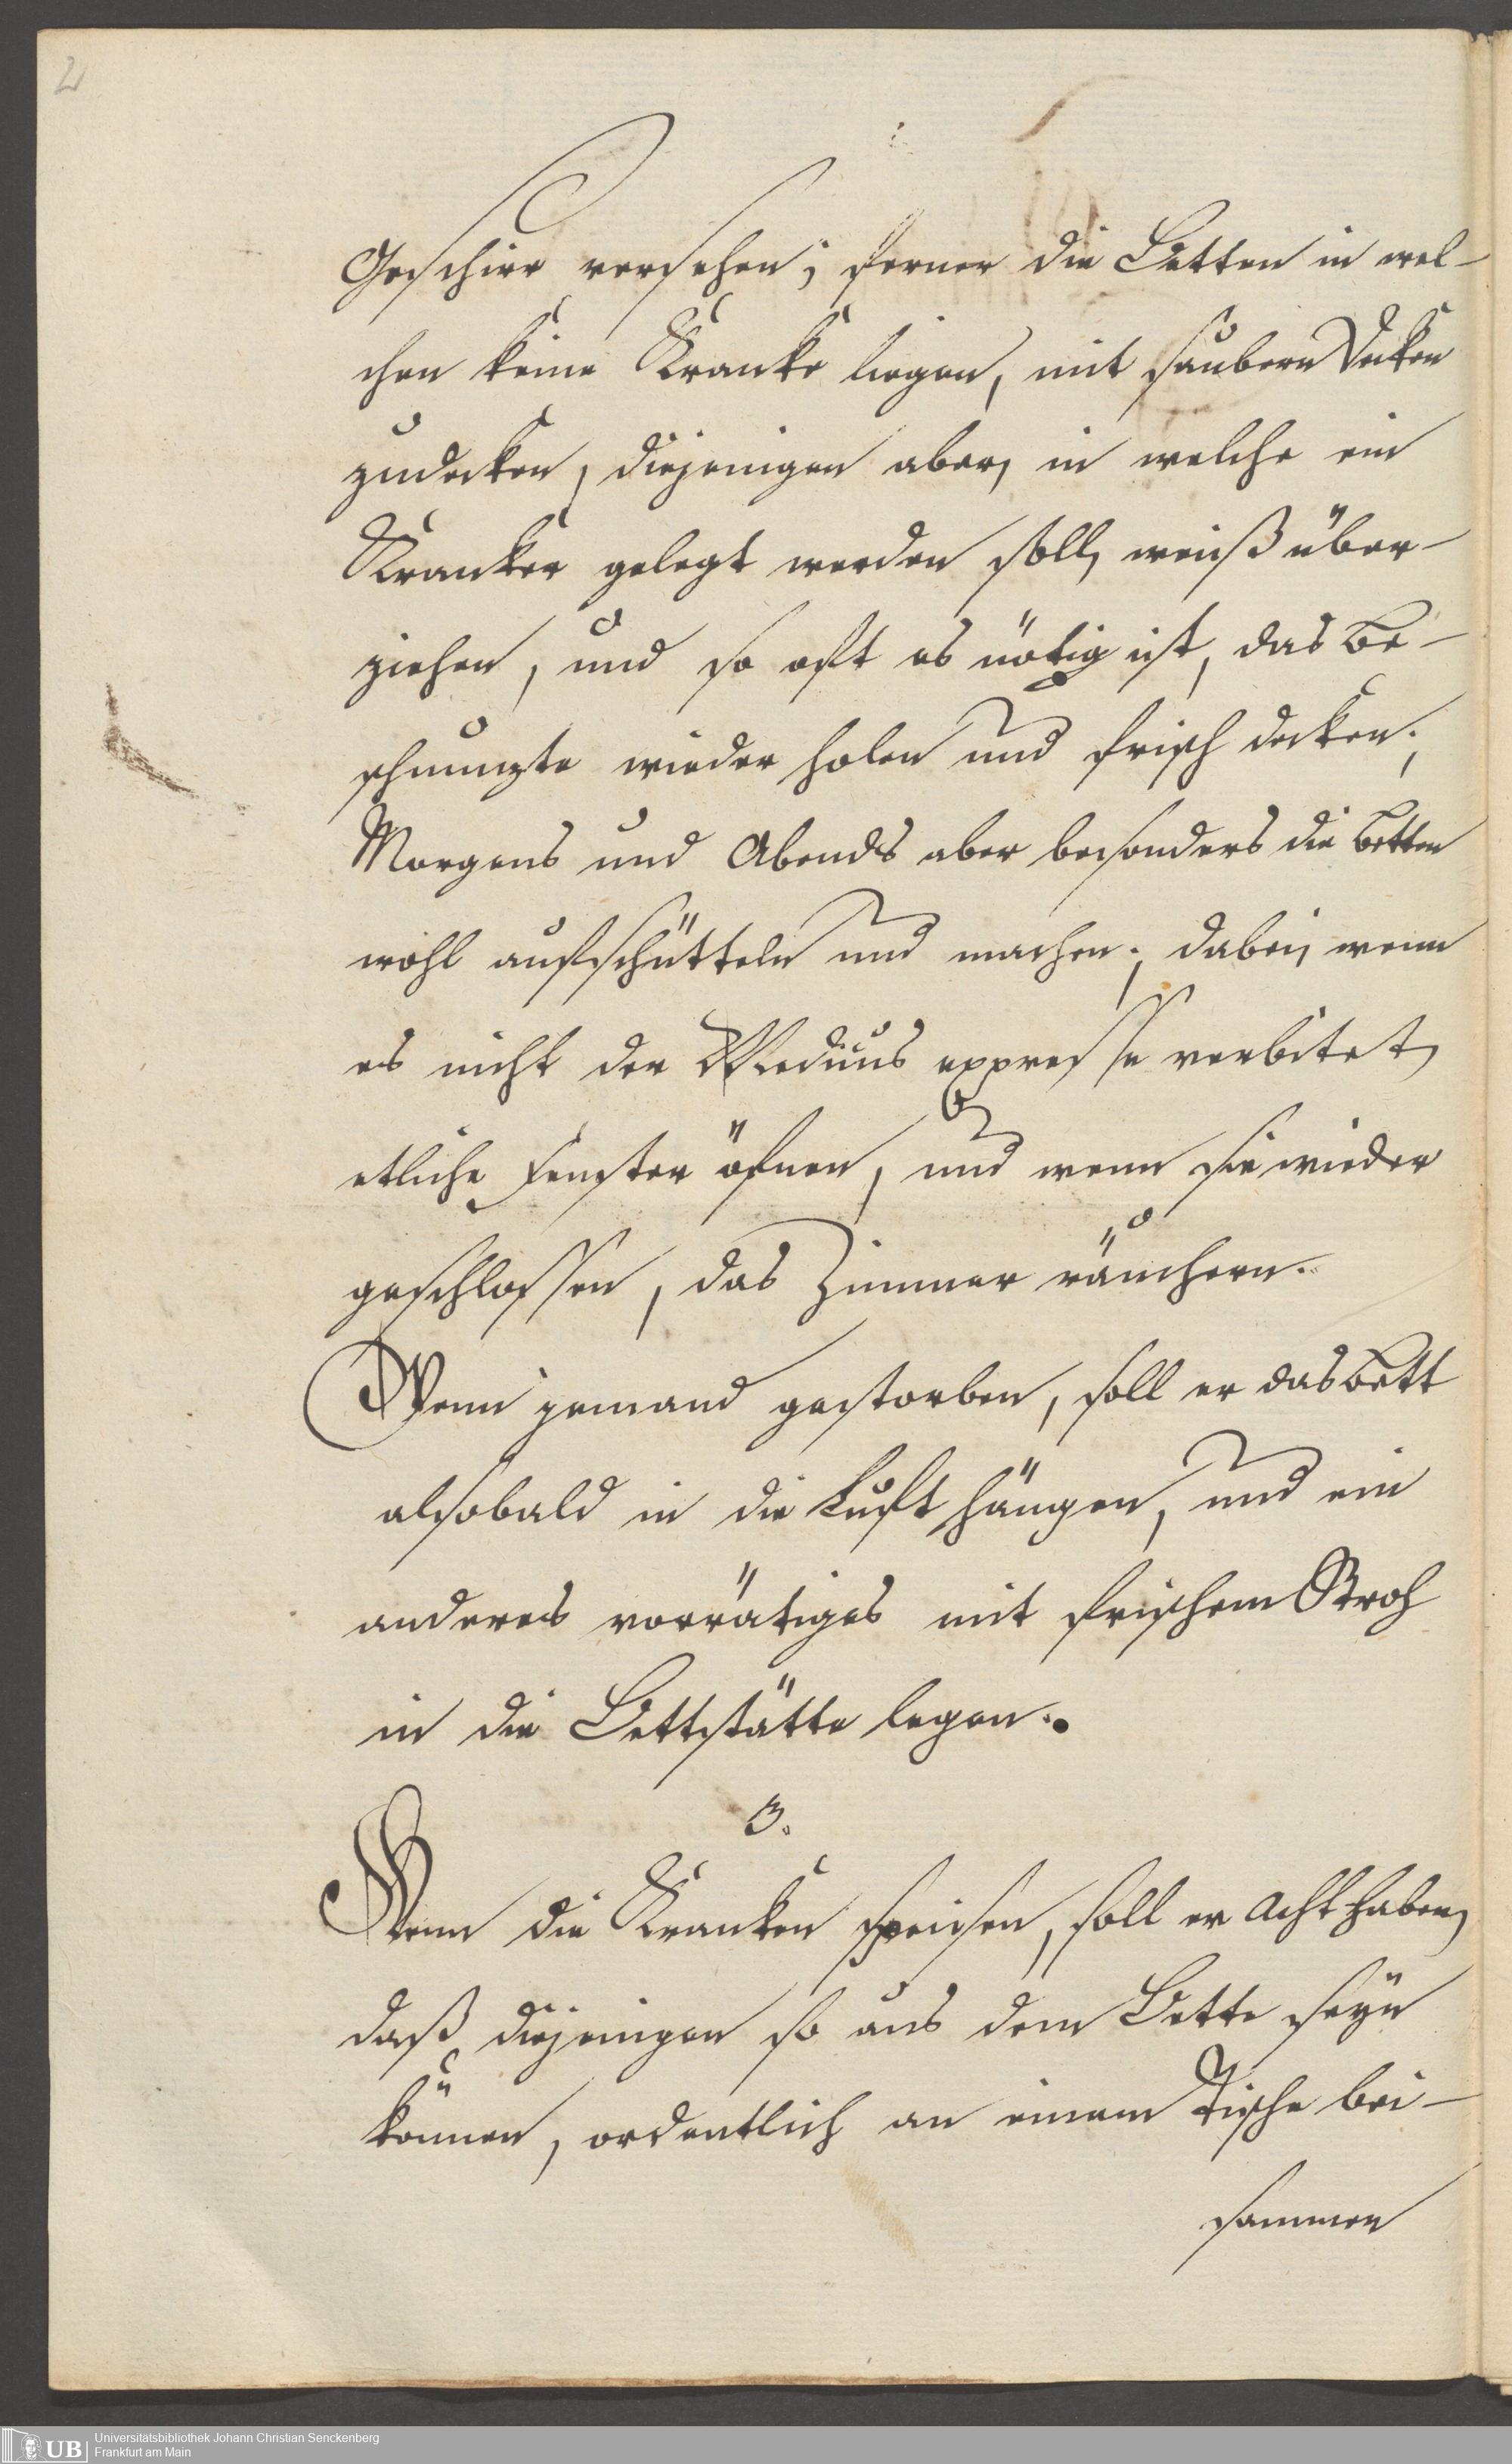 2
Geschirr versehen; ferner die Betten in wel-
chen keine Kranke liegen, mit saubern Decken
zudecken, diejenigen aber, in welche ein
Kranker gelegt werden soll, weiß über-
ziehen, und so oft es nötig ist, das be-
schmuzte wieder holen und frisch decken;
Morgens und Abends aber besonders die Betten
wohl aufschütteln und machen; dabei, wenn
es nicht der Medicus expresse verbietet,
etliche Fenster öfnen, und wenn sie wieder
geschlossen, das Zimmer räuchern.
Wenn jemand gestorben, soll er das Bett
alsobald in die Luft hängen, und ein
anderes vorrätiges mit frischem Stroh
in die Bettstätte legen.
3.
Wenn die Kranken speisen, soll er acht haben,
daß diejenigen so aus dem Bette seyn
können, ordentlich an einem Tische bei-
sammen
UB
Universitätsbibliothek Johann Christian Senckenberg
Frankfurt am Main